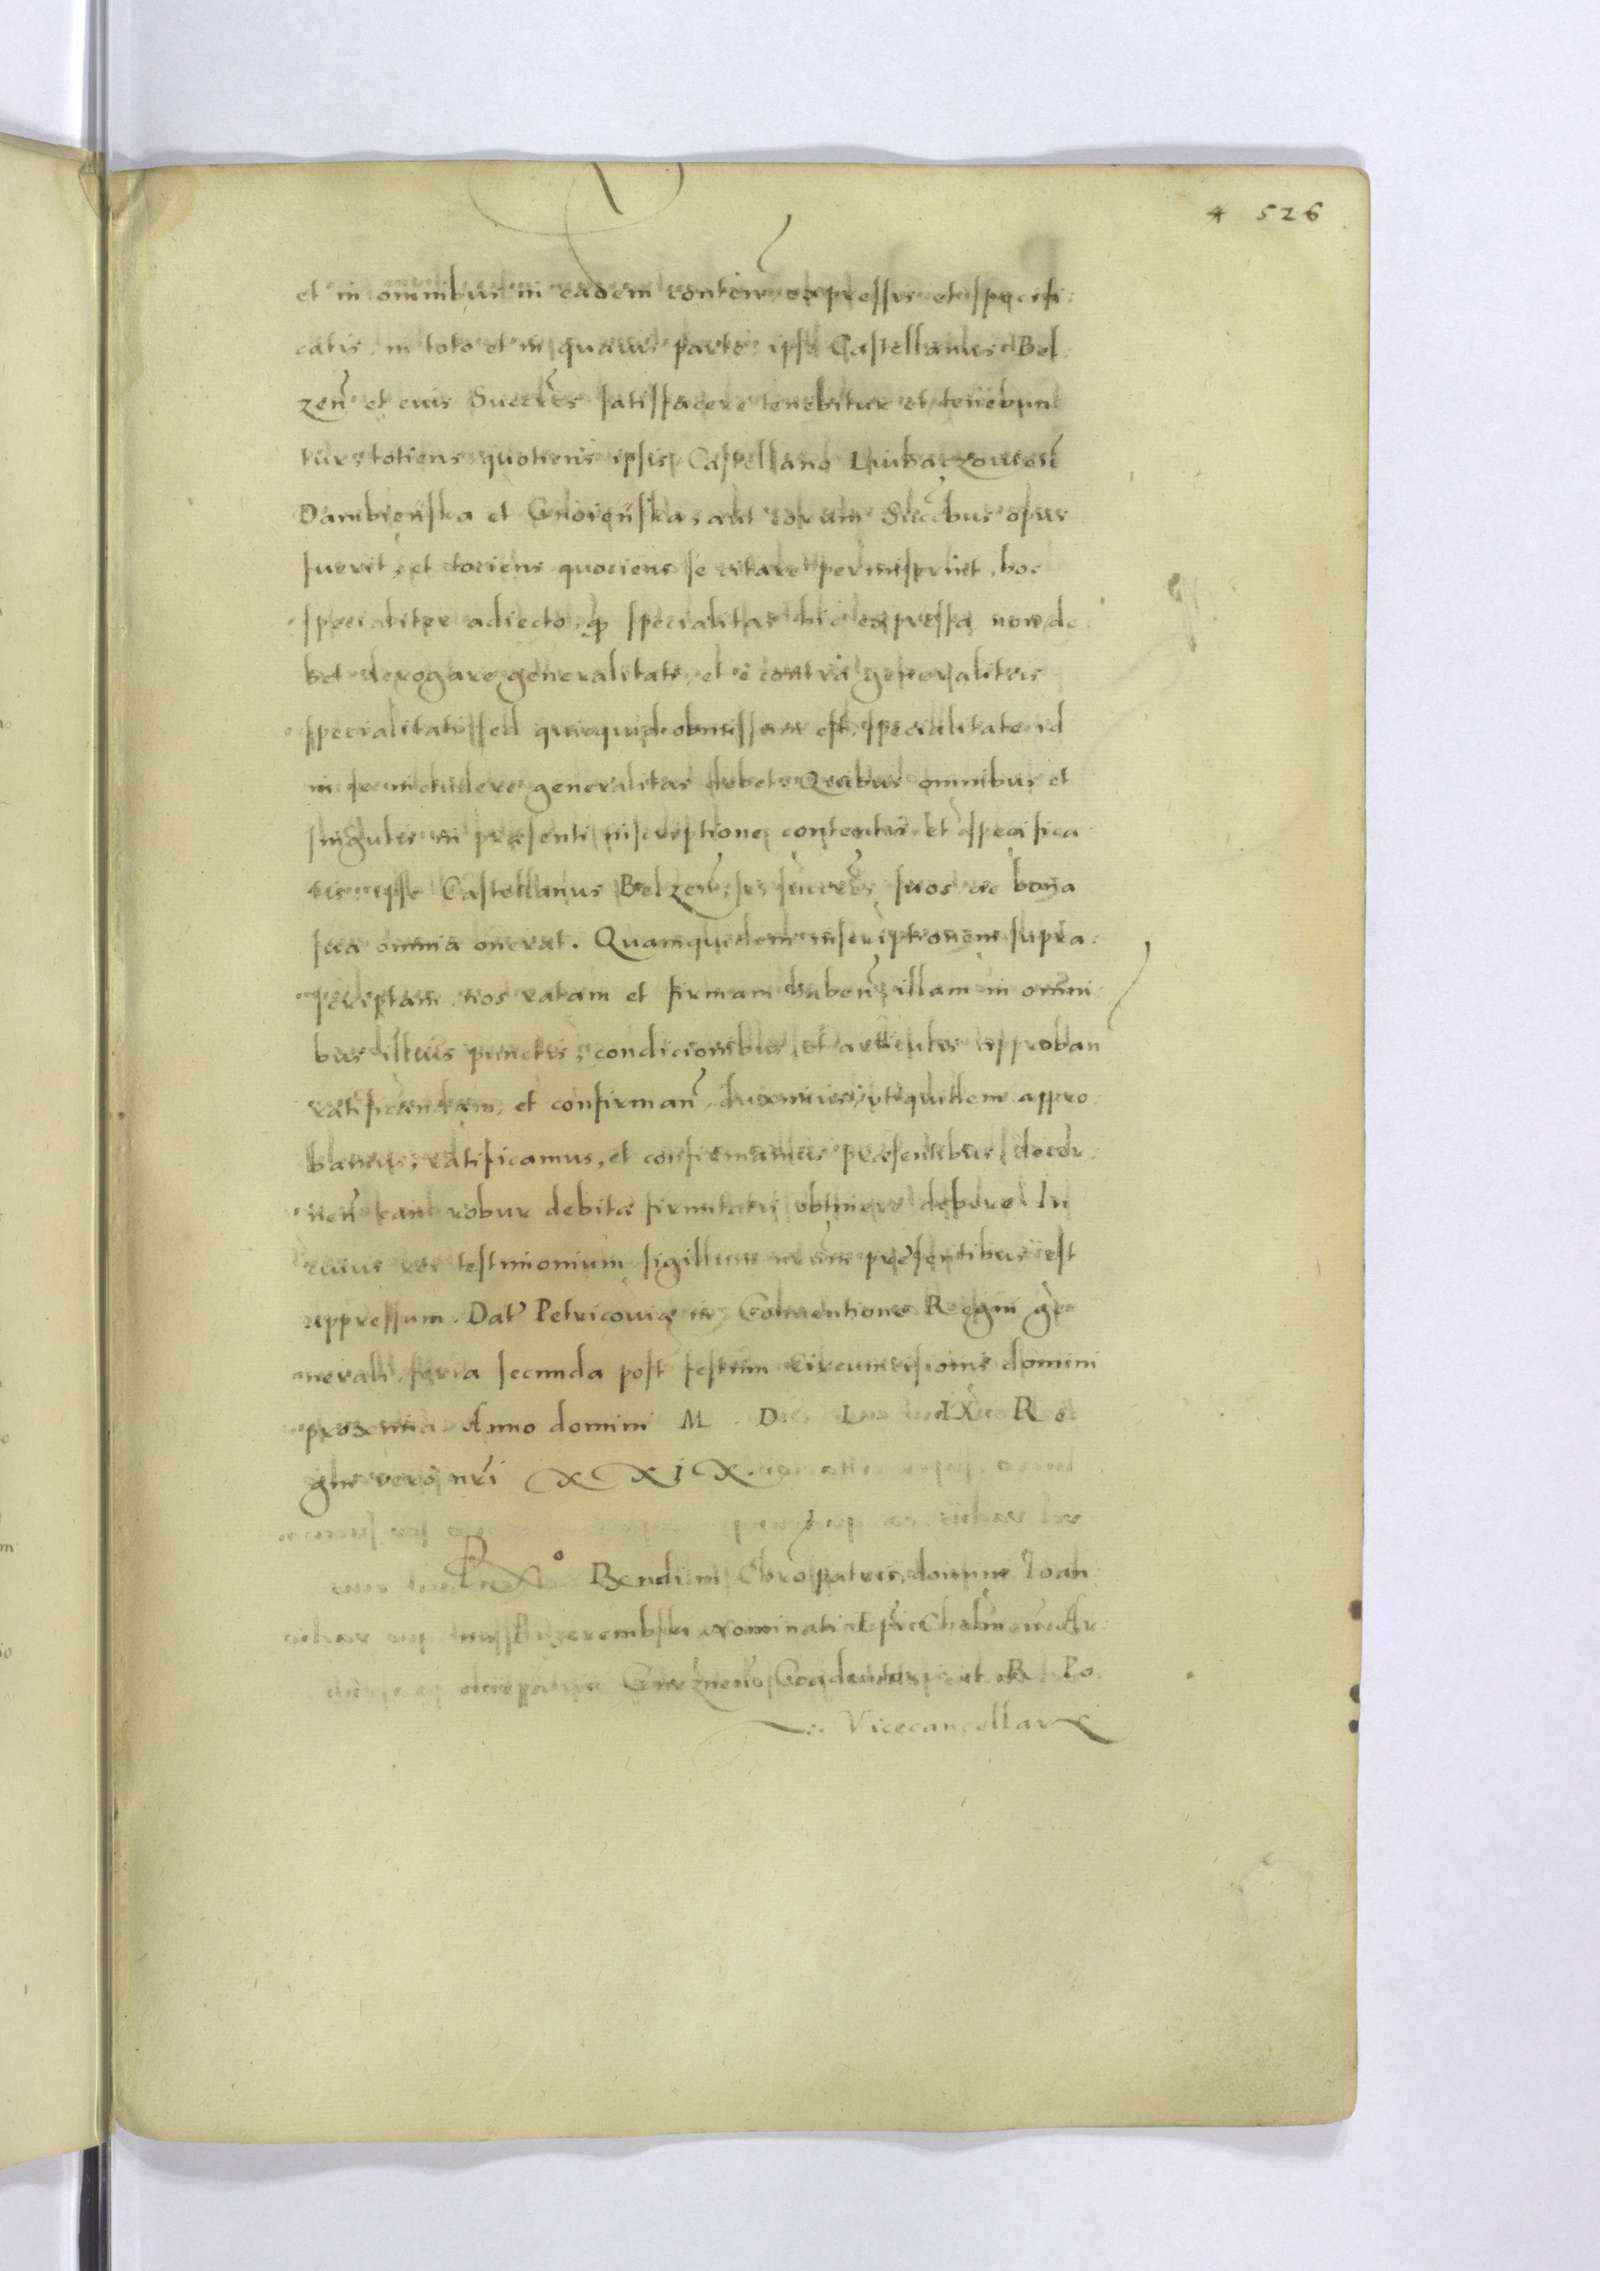 4 526
et in omnibus in eadem conten̄ expressis et specifi:
catis, in toto et in quavis parte ipse Castellanus Bel:
zen̄ et eius Succr̄es satisfacere tenebitur et tenebun
tur, totiens quotiens ipsis Castellano Liubaczowien̄
Dambienska et Gnoienska, aut eorum Succ̄bus opus
fuerit, et tociens quociens se citare permiserint, hoc
specialiter adiecto, q̄ specialitas hic expressa non de
bet derogare generalitati, et e contra generalitas
specialitati, sed quicquid obmissum est specialitate id
in se includere generalitas debet. Quibus omnibus et
singulis in præsenti inscriptione contentis et specifica
tis ipse Castellanus Belzen̄, se, succr̄es suos ac bona
sua omnia onerat. Quamquidem inscriptionem supra:
scriptam nos ratam et firmam haben̄, illam in omni
bus illius punctis, condicionibus, et articulis approban
ratificandam, et confirman̄ duximus, utiquidem appro
bamus, ratificamus, et confirmamus præsentibus, decer
nen̄ eam robur debitæ firmitatis obtinere debere. In
cuius rei testimonium sigillum nr̄um præsentibus est
appressum. Dat' Petricoviæ in Conventione Regni ge
nerali, feria secunda post festum circumcisionis domini
proxima Anno domini M D L IX Re
gni vero nr̄i XXIX.
Rendi in Chr̄o patris, domini Ioan
Przerembski Nominati
Gneznen̄ Coadiutoris, et R Po
Vicecancellar